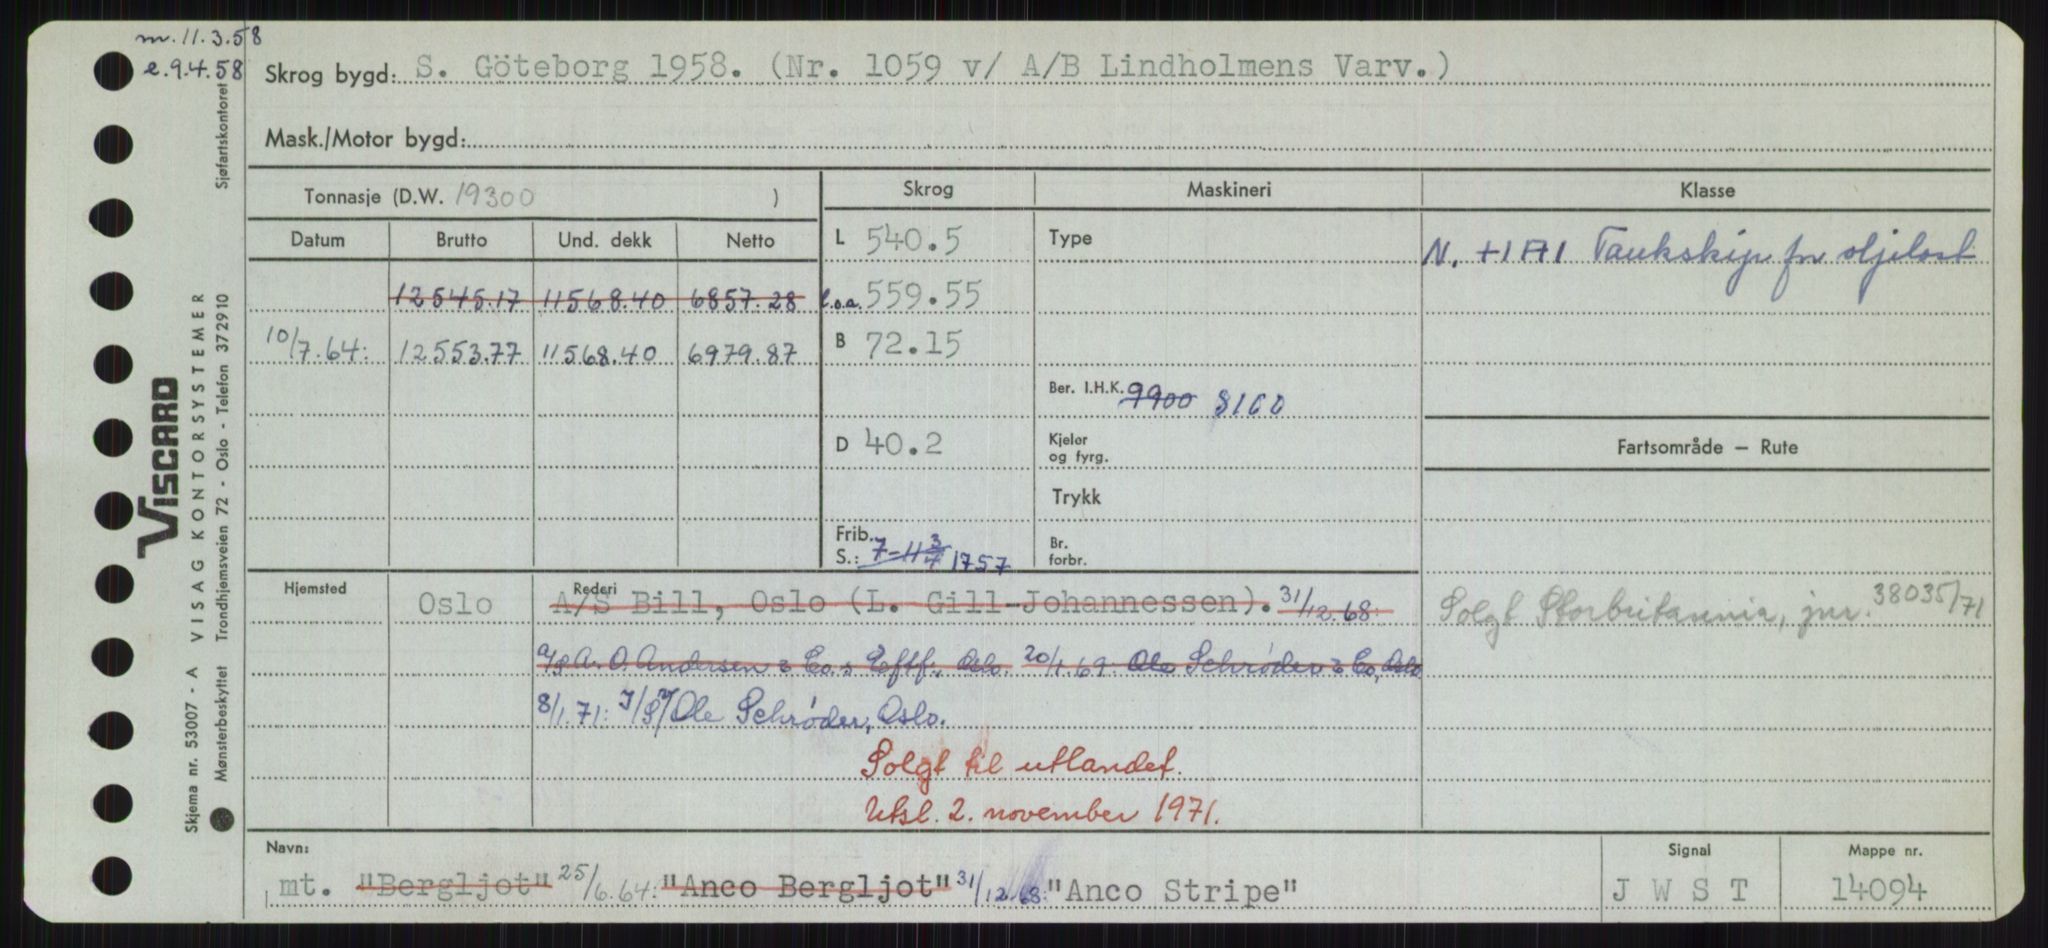 m. 11.3.58
e. 9.4.58
Skrog bygd: S. Göteborg 1958. (Nr. 1059 v/ A/B Lindholmens Varv.)
Mask./Motor bygd:
Tonnasje (D.W. 19300 )
Skrog Maskineri Klasse
Datum Brutto Und. dekk Netto
L 540.5 Type N. +1A1 Tankskip for oljelast
12545.17 11568.40 6857.28 l.o.a. 559.55
10/7.64: 12553.77 11568.40 6979.87 B 72.15
Ber. I.H.K. 9900 8160
D 40.2 Kjeler og fyrg. Fartsområde — Rute
Trykk
Frib. S.: 7-11 3/4 1757 Br. forbr.
Hjemsted Oslo Rederi A/S Bill, Oslo (L. Gill-Johannessen). 31/12.68: Solgt Storbritannia, jnr. 38035/71
A/S A. O. Andersen & Co.s Eftf., Oslo. 20/1.69: Ole Schrøder & Co, Oslo
8/1.71: I/S Ole Schrøder, Oslo.
Solgt til utlandet.
Utsl. 2. november 1971.
Navn: Signal Mappe nr.
mt. "Bergljot" 25/6.64: "Anco Bergljot" 31/12.68: "Anco Stripe" J W S T 14094
VISCARD
Skjema nr. 53007 - A VISAG KONTORSYSTEMER
Mønsterbeskyttet Trondhjemsveien 72 - Oslo - Telefon 372910 Sjøfartskontoret